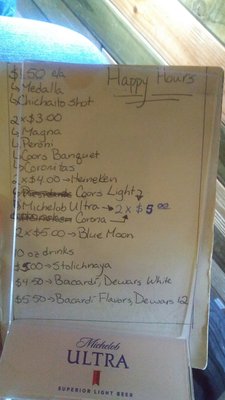 Happy Hours
$1.50 e/a
↳ Medalla
↳ Chichaito shot
2 x $3.00
↳ Magna
↳ Peroni
↳ Coors Banquet
↳ Coronitas
2 x $4.00 → Heineken
Coors Light
↳ Michelob Ultra → 2 x $5.00
Corona
2 x $5.00 → Blue Moon
10 oz drinks
$5.00 → Stolichnaya
$4.50 → Bacardi, Dewars White
$5.50 → Bacardi Flavors, Dewars 12
Michelob
ULTRA
SUPERIOR LIGHT BEER